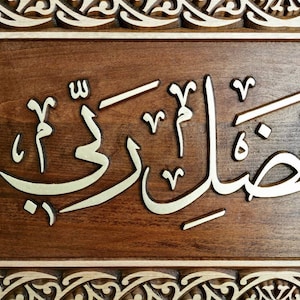 ضل ربي